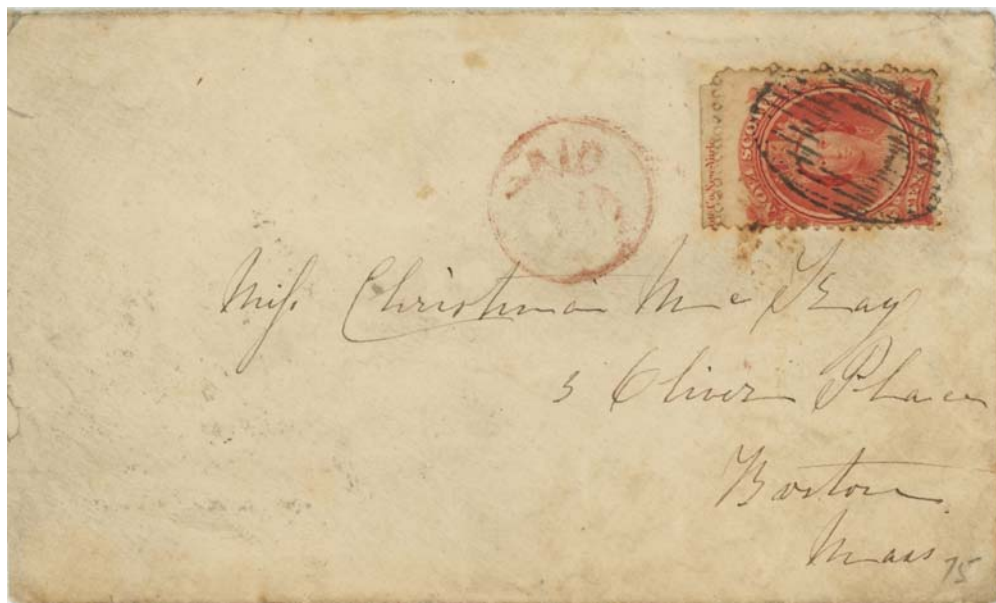 NOVA SCOTIA
PAID
Miss Christina McKay
5 Oliver Place
Boston
Mass
75